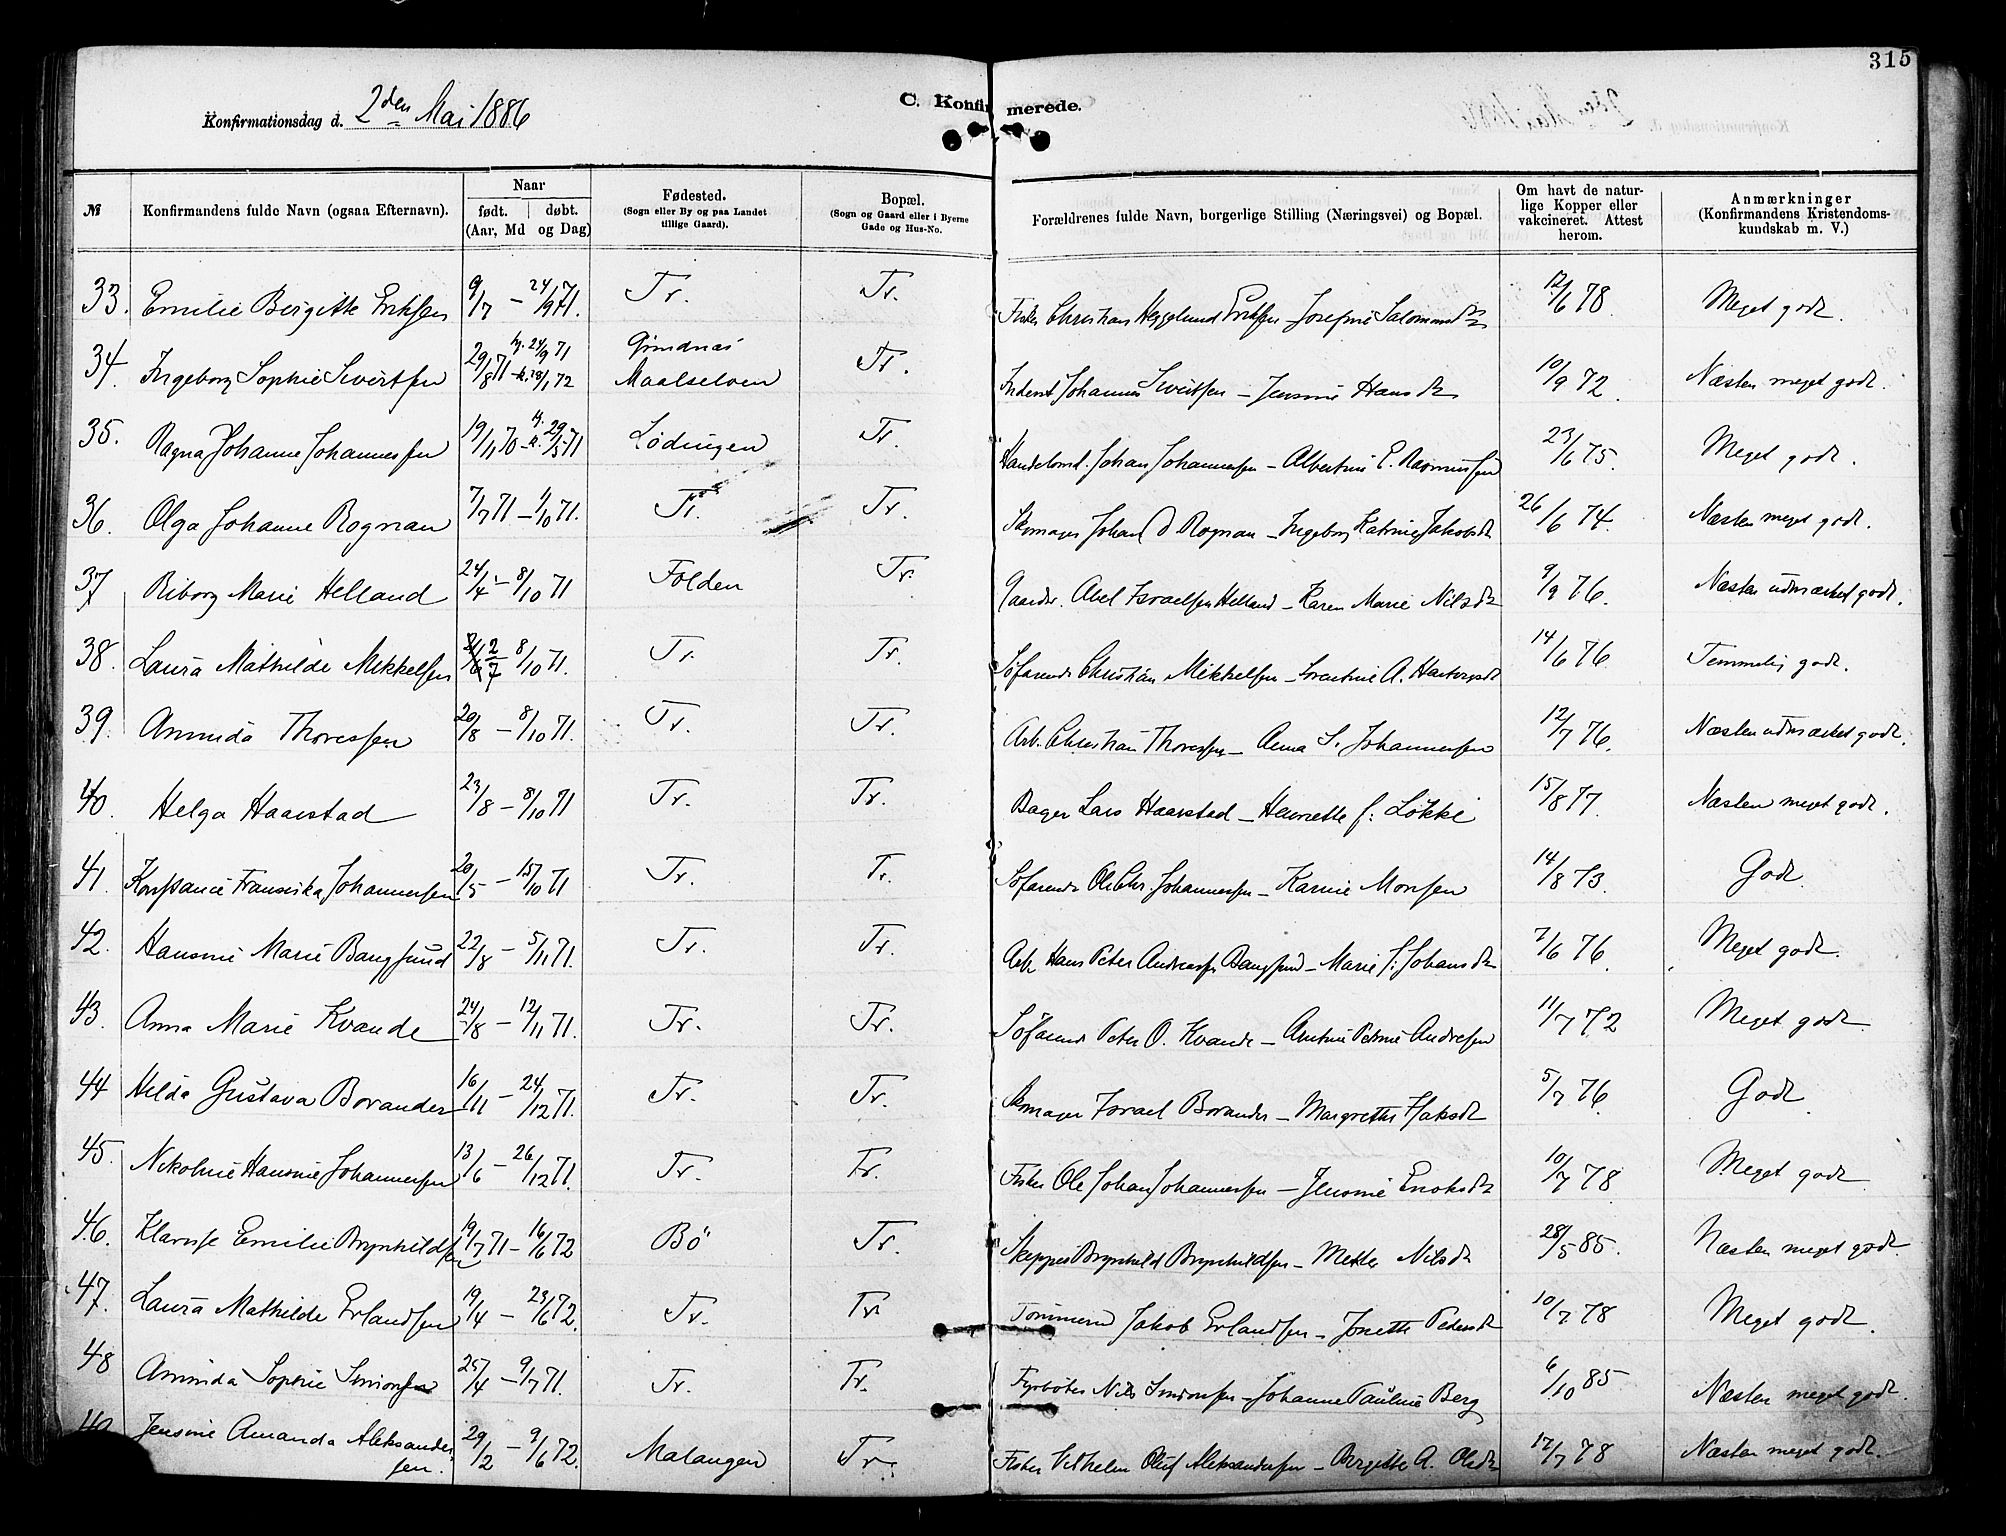 315
Konfirmationsdag d. 2den Mai 1886
C. Konfirmerede.
№ | Konfirmandens fulde Navn (ogsaa Efternavn). | Naar født. døbt. (Aar, Md og Dag) | Fødested. (Sogn eller By og paa Landet tillige Gaard). | Bopæl. (Sogn og Gaard eller i Byerne Gade og Hus-No. | Forældrenes fulde Navn, borgerlige Stilling (Næringsvei) og Bopæl. | Om havt de naturlige Kopper eller vakcineret. Attest herom. | Anmærkninger (Konfirmandens Kristendomskundskab m. V.)
33. Emilie Bergitte Eriksen 9/7 – 24/9 71. Tr. Tr. Fisker Christian Heggelund Eriksen – Josefine Salomonsdr 12/6 78. Meget godt.
34. Ingeborg Sophie Sivertsen 29/8 71 – hj. 24/9 71 k. 28/1 72 Grundnæs Maalselven Tr. Inderst Johannes Sivertsen – Jensine Hansdr 10/9 72. Næsten meget godt.
35. Ragna Johanne Johannessen 19/11 70 – hj. k. 29/5 71 Lødingen Tr. Handelsmd. Johan Johannessen – Albertine E. Rasmussen 23/6 75. Meget godt.
36. Olga Johanne Rognan 7/7 71 – 1/10 71. Tr. Tr. Skomager Johan D Rognan – Ingeborg Katrine Jakobsdr 26/6 74. Næsten meget godt.
37 Riborg Marie Helland 24/4 – 8/10 71 Folden Tr. Gaardbr. Abel Israelsen Helland – Karen Marie Nilsdr 9/9 76. Næsten udmærket godt.
38. Laura Mathilde Mikkelsen 2/7 8/10 71. Tr. Tr. Søfarende Christian Mikkelsen – Sorentine A. 14/6 76. Temmelig godt.
39. Aminda Thoressen 20/8 – 8/10 71. Tr. Tr. Arb. Christian Thoressen – Anna S. Johannessen 12/7 76. Næsten udmærket godt.
40. Helga Haarstad 23/8 – 8/10 71 Tr. Tr. Bager Lars Haarstad – Henriette f: Løkke 15/8 77. Næsten meget godt.
41. Konstance Franciska Johannessen 20/5 – 15/10 71 Tr. Tr. Søfarende Ole Chr. Johannessen – Karine Monsen 14/8 73. Godt.
42. Hansine Marie Bangsund 22/8 – 5/11 71. Tr. Tr. Arb Hans Peter Andreassen Bangsund – Marie f: Johansdr 7/6 76. Meget godt.
43. Anna Marie Kvande 24/8 – 12/11 71. Tr. Tr. Søfarende Peter O. Kvande – Petrine Andresen 11/7 72 Meget godt
44 Hilda Gustava Borander 16/11 – 24/12 71. Tr. Tr. Skomager Israel Borander – Margrethe Isaksdr 5/7 76. Godt
45. Nikoline Hansine Johannessen 13/6 – 26/12 71. Tr. Tr. Fisker Ole Johan Johannessen – Jensine Enoksdr 10/7 78 Meget godt
46. Klarisse Emilie Brynhildsen 19/7 71 – 16/6 72 Bö Tr. Skipper Brynhild Brynhildsen – Mette Nilsdr 28/5 85. Næsten meget godt
47. Laura Mathilde Erlandsen 19/4 – 23/6 72. Tr. Tr. Tömmermd Jakob Erlandsen – Jonette Pedersdr 10/7 78 Meget godt.
48 Aminda Sophie Simonsen 25/4 – 9/7 71. Tr. Tr. Fyrbøter Nils Simonsen – Johanne Pauline Berg 6/10 85 Næsten meget godt.
49 Jensine Amanda Aleksandersen. 29/2 – 9/6 72. Malangen Tr. Fisker Vilhelm Oluf Aleksandersen – Bergitte A. Olsdr 12/7 78 Næsten meget godt.